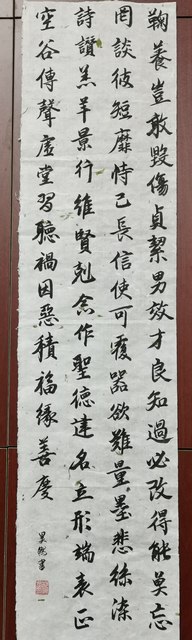 鞠養豈敢毀傷貞絜男效才良知過必改得能莫忘
罔談彼短靡恃己長信使可覆器欲難量墨悲絲染
詩讚羔羊景行維賢剋念作聖德建名立形端表正
空谷傳聲虛堂習聽禍因惡積福緣善慶
書